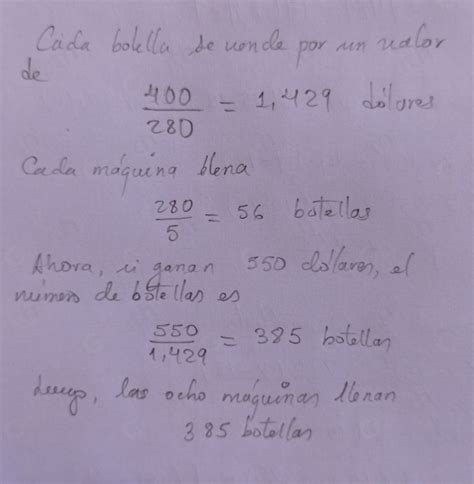 Cada botella se vende por un valor
de
400/280 = 1,429 dólares
Cada máquina llena
280/5 = 56 botellas
Ahora, si ganan 550 dólares, el
número de botellas es
550/1,429 = 385 botellas
Luego, las ocho máquinas llenan
385 botellas